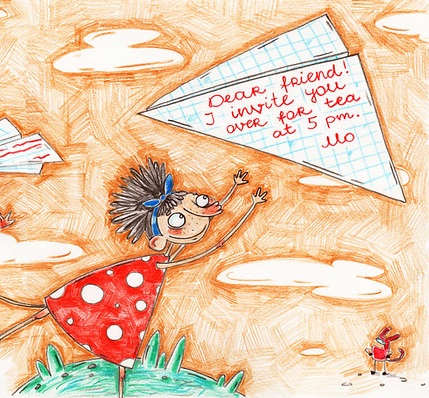 Dear friend!
I invite you
over for tea
at 5 pm.
Mo